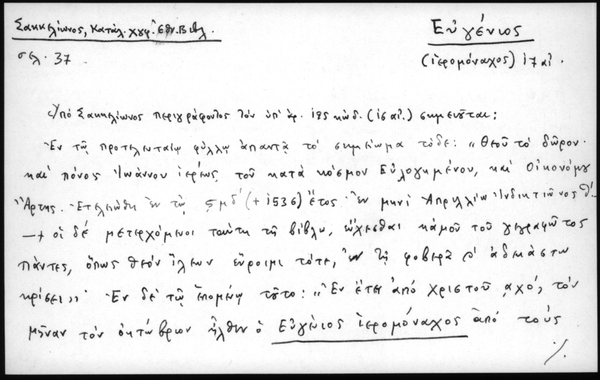 Σακκελίωνος, Κατάλ. χγφ. Ἐθν. Βιβλ.
Εὐγένιος
σελ. 37
(ἱερομόναχος) 17 αἰ.
Ὑπό Σακκελίωνος περιγράφοντος τόν ὑπ' ἀρ. 195 κώδ. (16 αἰ.) σημειοῦται:
Ἐν τῷ προτελευταίῳ φύλλῳ ἀπαντᾷ τό σημείωμα τόδε: "Θεοῦ τό δῶρον
καί πόνος Ἰωάννου ἱερέως τοῦ κατά κόσμον Εὐλογημένου, καί Οἰκονόμου
Ἄρτης. Ἐτελειώθη ἐν τῷ ζμδ' (+ 1536) ἔτος. Ἐν μηνί Ἀπριλλίῳ Ἰνδικτιῶνος θ'
— + οἱ δέ μετερχόμενοι ταύτη τῇ βίβλῳ, εὔχεσθαι κἀμοῦ τοῦ γεγραφῶτος
πάντες, ὅπως Θεόν ἵλεων εὕροιμι τότε, ἐν τῇ φοβερᾷ ἀδεκάστω
κρίσει". Ἐν δέ τῷ ἑπομένῳ τοῦτο: "Ἐν ἔτει ἀπό Χριστοῦ ͵αχό, τόν
μῆναν τόν ὀκτώβριον ἦλθεν ὁ Εὐγένιος ἱερομόναχος ἀπό τούς
./.